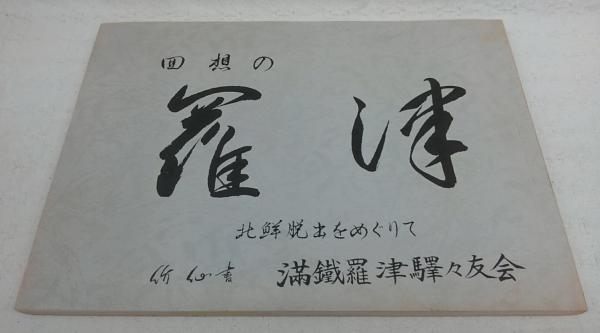 回想の
羅津
北鮮脱出をめぐりて
竹仙書 満鐵羅津驛々友会